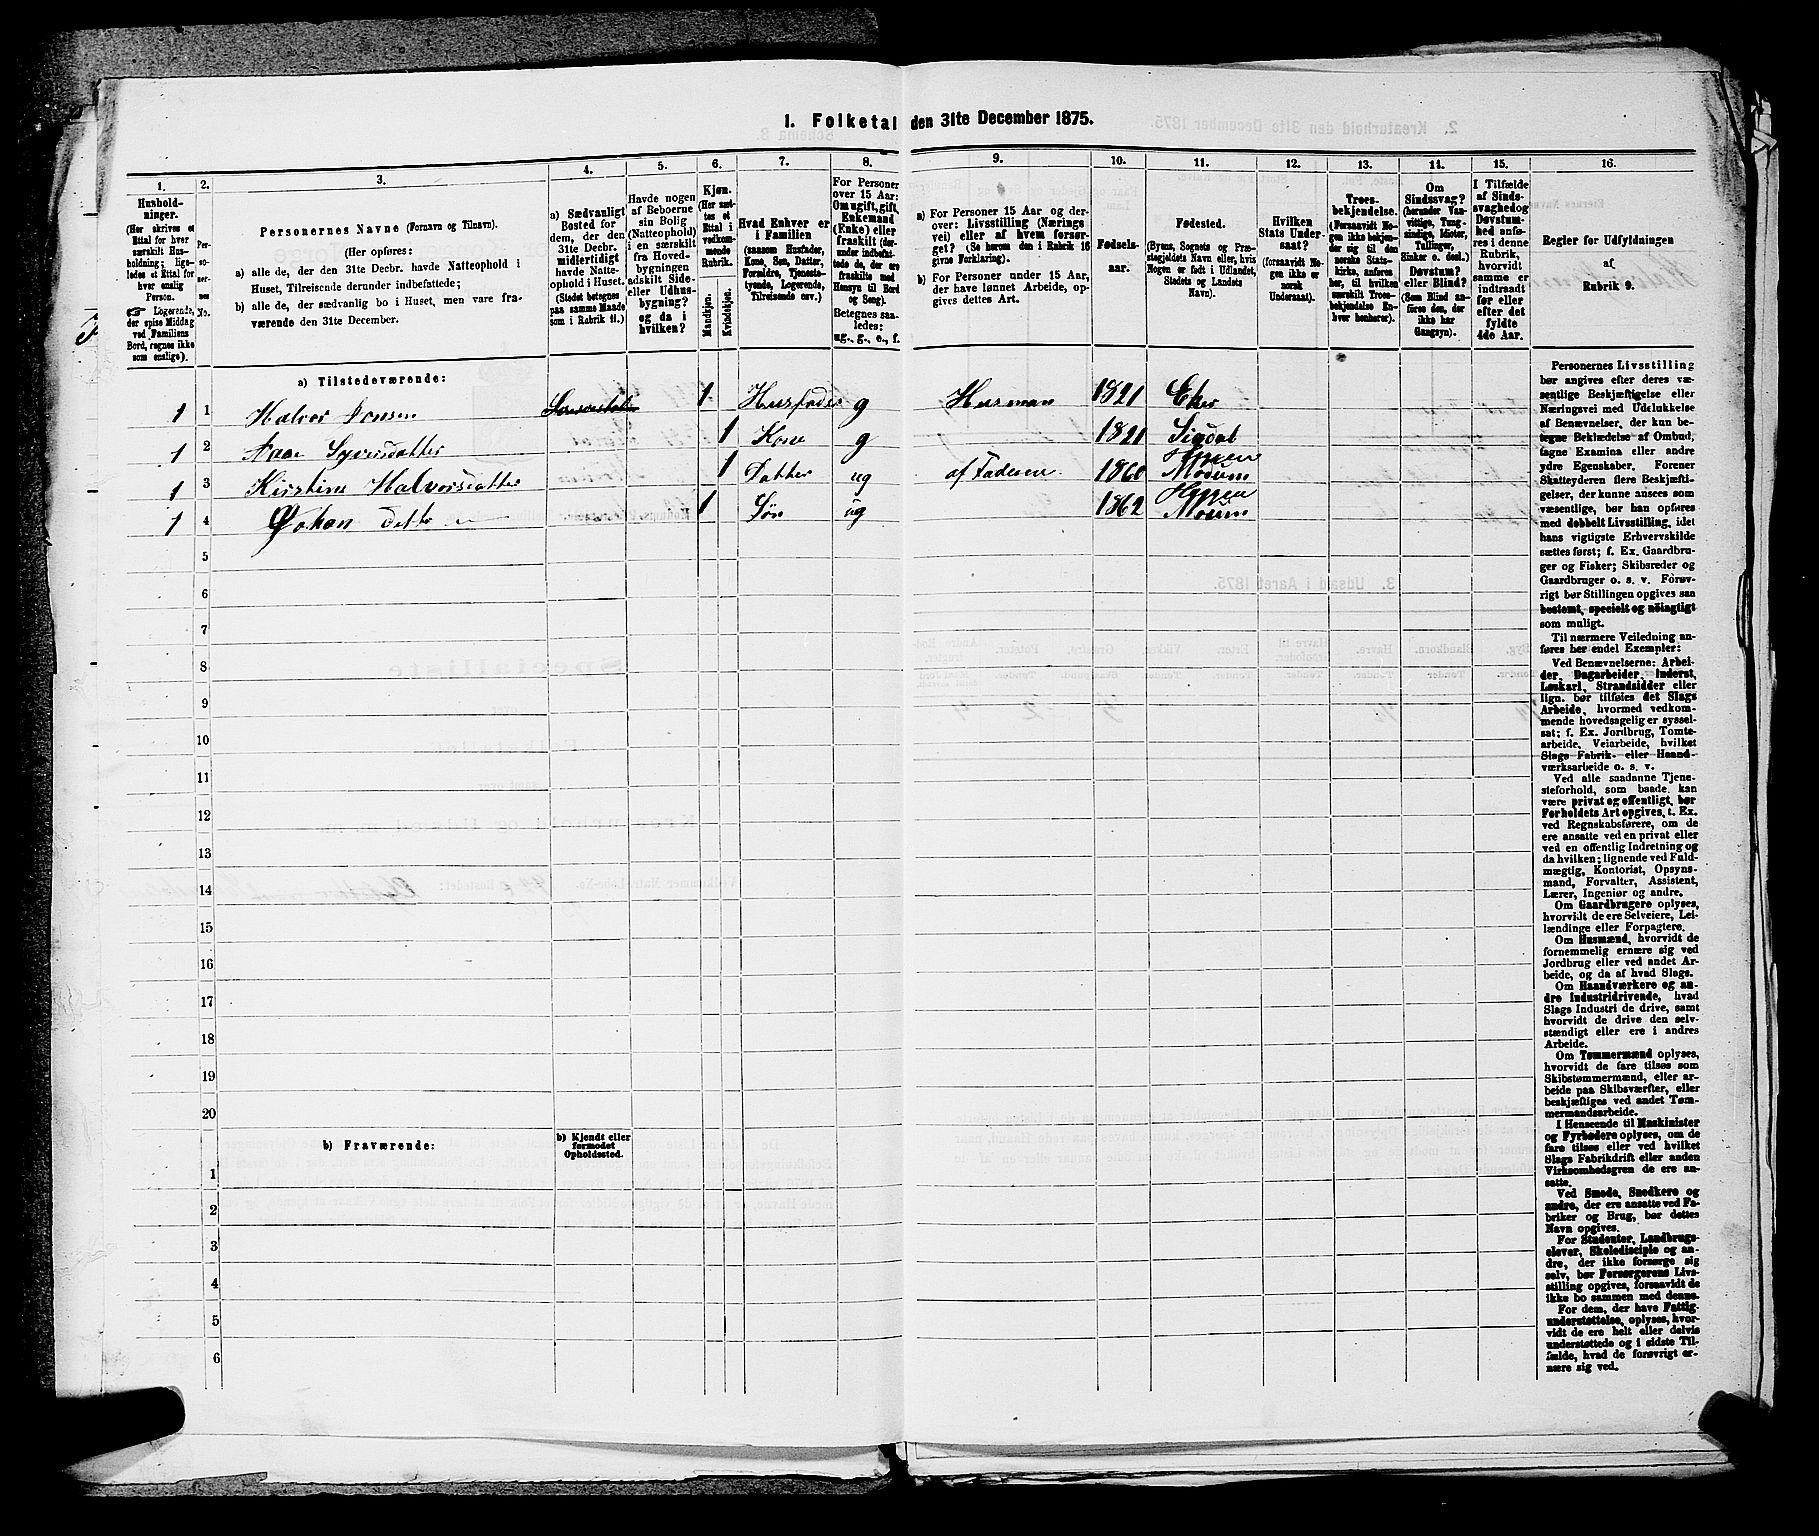 1. Folketal den 31te December 1875.
1.
2.
3.
4.
5.
6.
7.
8.
9.
10.
11.
12.
13.
14.
15.
16.
Hushold-
ninger.
(Her skrives et
Ettal for hver
særskilt Hus-
holdning; lige-
ledes et Ettal for
hver enslig
Person.
☞ Logerende,
der spise Middag
ved Familiens
Bord, regnes ikke
som enslige).
Per-
so-
ner-
nes
No.
Personernes Navne (Fornavn og Tilnavn).
(Her opføres:
a) alle de, der den 31te Decbr. havde Natteophold i
Huset, Tilreisende derunder indbefattede;
b) alle de, der sædvanlig bo i Huset, men vare fra-
værende den 31te December.
a) Sædvanligt
Bosted for
dem, der den
31te Decbr.
midlertidigt
havde Natte-
ophold i Huset.
(Stedet betegnes
paa samme Maade
som i Rubrik 11.)
Havde nogen
af Beboerne
sin Bolig
(Natteophold)
i en særskilt
fra Hoved-
bygningen
adskilt Side-
eller Udhus-
bygning?
og da i
hvilken?
Kjøn.
(Her sæt-
tes et
Ettal i
vedkom-
mende
Rubrik.
Mandkjøn.
Kvindekjøn.
Hvad Enhver er
i Familien
(saasom Husfader,
Kone, Søn, Datter,
Forældre, Tjeneste-
tyende, Logerende,
Tilreisende osv.)
For Personer
over 15 Aar:
Om ugift, gift,
Enkemand
(Enke) eller
fraskilt (der-
under indbefat-
tede de, der ere
fraskilte med
Hensyn til Bord
og Seng).
Betegnes saa-
ledes:
ug., g., e., f.
a) For Personer 15 Aar og der-
over: Livsstilling (Nærings-
vei) eller af hvem forsør-
get? (Se herom den i Rubrik 16
givne Forklaring).
b) For Personer under 15 Aar,
der have lønnet Arbeide, op-
gives dettes Art.
Fødsels-
aar.
Fødested.
(Byens, Sognets og Præ-
stegjeldets Navn eller, hvis
Nogen er født i Udlandet,
Stedets og Landets
Navn).
Hvilken
Stats Under-
saat?
(forsaavidt No-
gen ikke er
norsk
Undersaat).
Troes-
bekjendelse.
(Forsaavidt No-
gen ikke bekjen-
der sig til den
norske Stats-
kirke, anføres
her, til hvilken
særskilt Troes-
bekjendelse En-
hver henhører).
Om
Sindssvag?
(herunder Van-
vittige, Tung-
sindige, Idioter,
Tullinger,
Sinker o. desl.)
Døvstum?
eller Blind?
(Som Blind an-
føres den, der
ikke har
Gangsyn).
I Tilfælde
af Sinds-
svaghed og
Døvstum-
hed anfø-
res i denne
Rubrik,
hvorvidt
samme er
indtraadt
før eller
efter det
fyldte
4de Aar.
Regler for Udfyldningen
af
Rubrik 9.
a) Tilstedeværende:
1 1 Halvor 1 Husfader g Husman 1821 Eker
1 2 Syversdatter 1 Kone g 1821 Sigdal
1 3 Halvorsdatter 1 Datter ug af Faderen 1860 Modum
1 4 Johan 1 Søn ug 1862 Modum
5
6
7
8
9
10
11
12
13
14
15
16
17
18
19
20
b) Fraværende:
b) Kjendt eller
formodet
Opholdssted.
1
2
3
4
5
6
Personernes Livsstilling
bør angives efter deres væ-
sentlige Beskjæftigelse eller
Næringsvei med Udelukkelse
af Benævnelser, der kun be-
tegne Beklædelse af Ombud,
tagne Examina eller andre
ydre Egenskaber. Forener
Skatteyderen flere Beskjæfti-
gelser, der kunne ansees som
væsentlige, bør han opføres
med dobbelt Livsstilling, idet
hans vigtigste Erhvervskilde
sættes først; f. Ex. Gaardbru-
ger og Fisker; Skibsreder og
Gaardbruger o. s. v. Forøv-
rigt bør Stillingen opgives saa
bestemt, specielt og nøiagtigt
som muligt.
Til nærmere Veiledning an-
føres her endel Exempler:
Ved Benævnelserne: Arbei-
der, Dagarbeider, Inderst,
Løskarl, Strandsidder eller
lign. bør tilføies det Slags
Arbeide, hvormed vedkom-
mende hovedsagelig er syssel-
sat; f. Ex. Jordbrug, Tomte-
arbeide, Veiarbeide, hvilket
Slags Fabrik- eller Haand-
værksarbeide o. s. v.
Ved alle saadanne Tjene-
steforhold, som baade kan
være privat og offentligt, bør
Forholdets Art opgives, t. Ex.
ved Regnskabsførere, om de
ere ansatte ved en privat eller
ved en offentlig Indretning og
da hvilken; lignende ved Fuld-
mægtig, Kontorist, Opsyns-
mand, Forvalter, Assistent,
Lærer, Ingeniør og andre.
Om Gaardbrugere oplyses,
hvorvidt de ere Selveiere, Lei-
lændinge eller Forpagtere.
Om Husmænd, hvorvidt de
fornemmelig ernære sig ved
Jordbrug eller ved andet Ar-
beide, og da af hvad Slags.
Om Haandværkere og an-
dre Industridrivende, hvad
Slags Industri de drive, samt
hvorvidt de drive den selv-
stændigt eller ere i andres
Arbeide.
Om Tømmermænd oplyses,
hvorvidt de fare tilsøs som
Skibstømmermænd, eller ar-
beide paa Skibsværfter, eller
beskjæftiges ved andet Tøm-
mermandsarbeide.
I Henseende til Maskinister
og Fyrbødere oplyses, om de
fare tilsøs eller ved hvilket
Slags Fabrikdrift eller anden
Virksomhedsgren de ere an-
satte.
Ved Smede, Snedkere og
andre, der ere ansatte ved Fa-
briker og Brug, bør dettes
Navn opgives.
For Studenter, Landbrugs-
elever, Skoledisciple og an-
dre, der ikke forsørge sig
selv, bør Forsørgerens Livs-
stilling opgives, forsaavidt de
ikke bo sammen med denne.
For dem, der have Fattig-
understøttelse, oplyses, hvor-
vidt de ere helt eller delvis
understøttede og i sidste Til-
fælde, hvad de forøvrigt er-
nære sig ved.